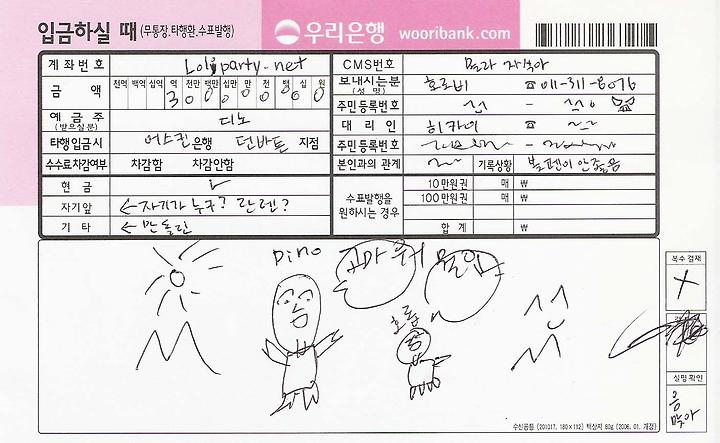 입금하실 때 (무통장.타행환.수표발행) 우리은행 wooribank.com
계 좌 번 호 Loliparty.net CMS번호 몰라 자식아
금 액 천억 백억 십억 억 천만 백만 십만 만 천 백 십 원 보내시는분 (성 명) 호로비 ☎ 011-311-8076
3 0 0 0 0 0 0 0 0 주민등록번호 -
예 금 주 (받으실분) 디노 대 리 인 히카이 ☎
타행입금시 어스킨 은행 던바튼 지점 주민등록번호 -
수수료차감여부 차감함 차감안함 본인과의 관계 기록상황 볼펜이 안좋음
현 금 수표발행을 원하시는 경우 10만원권 매 ₩
자기앞 ←자기가 누구? 란렌? 100만원권 매 ₩
기 타 ←만돌린 합 계 ₩
Dino 고마워
호롭
복수 결재
실명 확인
응
맞아
수신공통 (201017, 180×112) 백상지 80g (2006. 01. 개정)